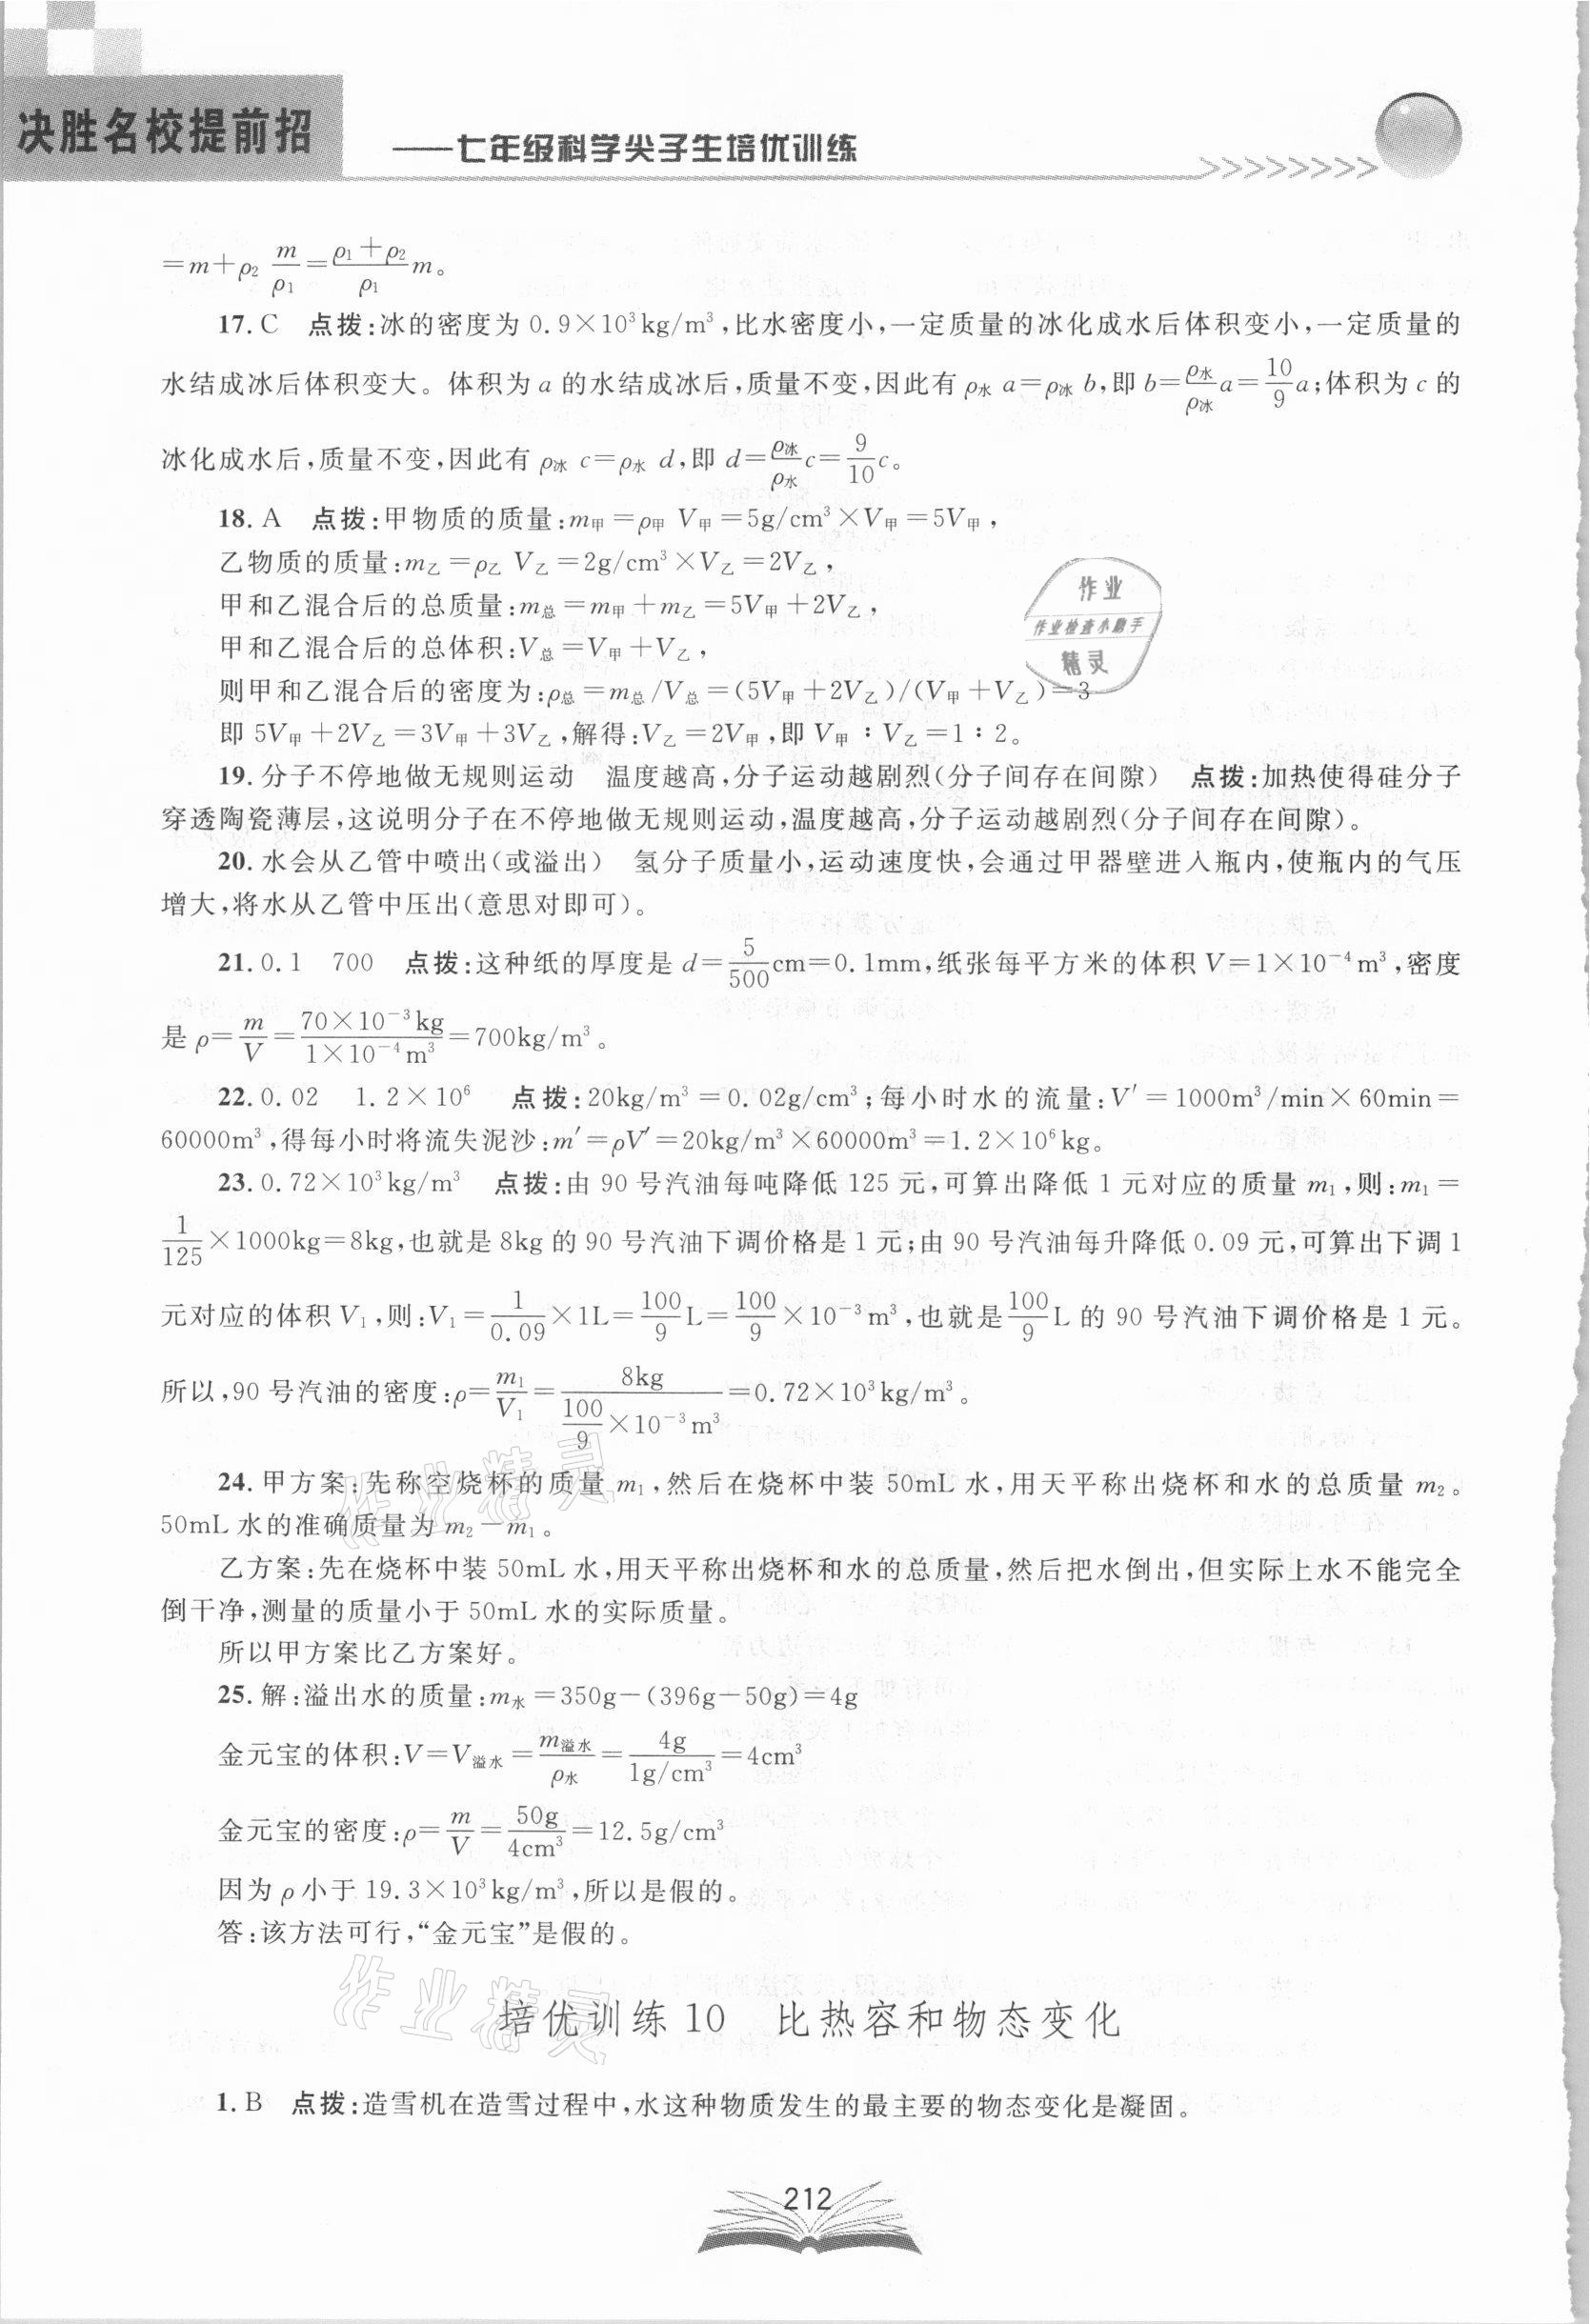 决胜名校提前招
——七年级科学尖子生培优训练
=m+ρ₂ m/ρ₁=(ρ₁+ρ₂)/ρ₁ m。
17.C　点拨:冰的密度为0.9×10³kg/m³,比水密度小,一定质量的冰化成水后体积变小,一定质量的
水结成冰后体积变大。体积为a的水结成冰后,质量不变,因此有ρ水 a=ρ冰 b,即b=ρ水/ρ冰 a=10/9 a;体积为c的
冰化成水后,质量不变,因此有ρ冰 c=ρ水 d,即d=ρ冰/ρ水 c=9/10 c。
18.A　点拨:甲物质的质量:m甲=ρ甲 V甲=5g/cm³×V甲=5V甲,
乙物质的质量:m乙=ρ乙 V乙=2g/cm³×V乙=2V乙,
甲和乙混合后的总质量:m总=m甲+m乙=5V甲+2V乙,
甲和乙混合后的总体积:V总=V甲+V乙,
则甲和乙混合后的密度为:ρ总=m总/V总=(5V甲+2V乙)/(V甲+V乙)=3
即5V甲+2V乙=3V甲+3V乙,解得:V乙=2V甲,即V甲∶V乙=1∶2。
作业
作业检查小助手
精灵
19.分子不停地做无规则运动　温度越高,分子运动越剧烈(分子间存在间隙)　点拨:加热使得硅分子
穿透陶瓷薄层,这说明分子在不停地做无规则运动,温度越高,分子运动越剧烈(分子间存在间隙)。
20.水会从乙管中喷出(或溢出)　氢分子质量小,运动速度快,会通过甲器壁进入瓶内,使瓶内的气压
增大,将水从乙管中压出(意思对即可)。
21.0.1　700　点拨:这种纸的厚度是d=5/500cm=0.1mm,纸张每平方米的体积V=1×10⁻⁴m³,密度
是ρ=m/V=70×10⁻³kg/1×10⁻⁴m³=700kg/m³。
22.0.02　1.2×10⁶　点拨:20kg/m³=0.02g/cm³;每小时水的流量:V′=1000m³/min×60min=
60000m³,得每小时将流失泥沙:m′=ρV′=20kg/m³×60000m³=1.2×10⁶kg。
23.0.72×10³kg/m³　点拨:由90号汽油每吨降低125元,可算出降低1元对应的质量m₁,则:m₁=
1/125×1000kg=8kg,也就是8kg的90号汽油下调价格是1元;由90号汽油每升降低0.09元,可算出下调1
元对应的体积V₁,则:V₁=1/0.09×1L=100/9L=100/9×10⁻³m³,也就是100/9L的90号汽油下调价格是1元。
所以,90号汽油的密度:ρ=m₁/V₁=8kg/(100/9×10⁻³m³)=0.72×10³kg/m³。
24.甲方案:先称空烧杯的质量m₁,然后在烧杯中装50mL水,用天平称出烧杯和水的总质量m₂。
50mL水的准确质量为m₂-m₁。
作业精灵
乙方案:先在烧杯中装50mL水,用天平称出烧杯和水的总质量,然后把水倒出,但实际上水不能完全
倒干净,测量的质量小于50mL水的实际质量。
所以甲方案比乙方案好。
25.解:溢出水的质量:m水=350g-(396g-50g)=4g
金元宝的体积:V=V溢水=m溢水/ρ水=4g/1g/cm³=4cm³
金元宝的密度:ρ=m/V=50g/4cm³=12.5g/cm³
因为ρ小于19.3×10³kg/m³,所以是假的。
答:该方法可行,“金元宝”是假的。
作业精灵
培优训练10　比热容和物态变化
1.B　点拨:造雪机在造雪过程中,水这种物质发生的最主要的物态变化是凝固。
212